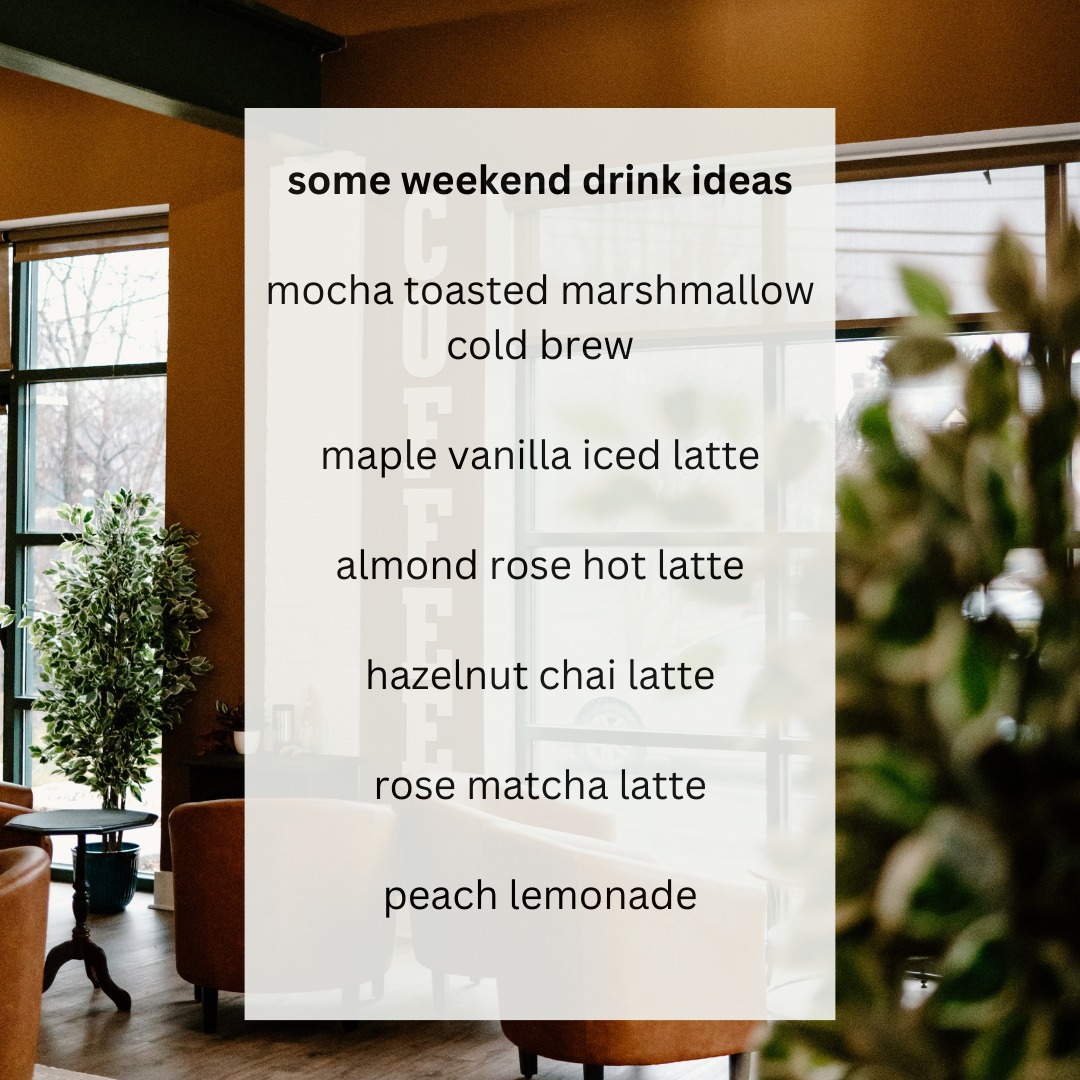 some weekend drink ideas
mocha toasted marshmallow
cold brew
maple vanilla iced latte
almond rose hot latte
hazelnut chai latte
rose matcha latte
peach lemonade
COFFEE